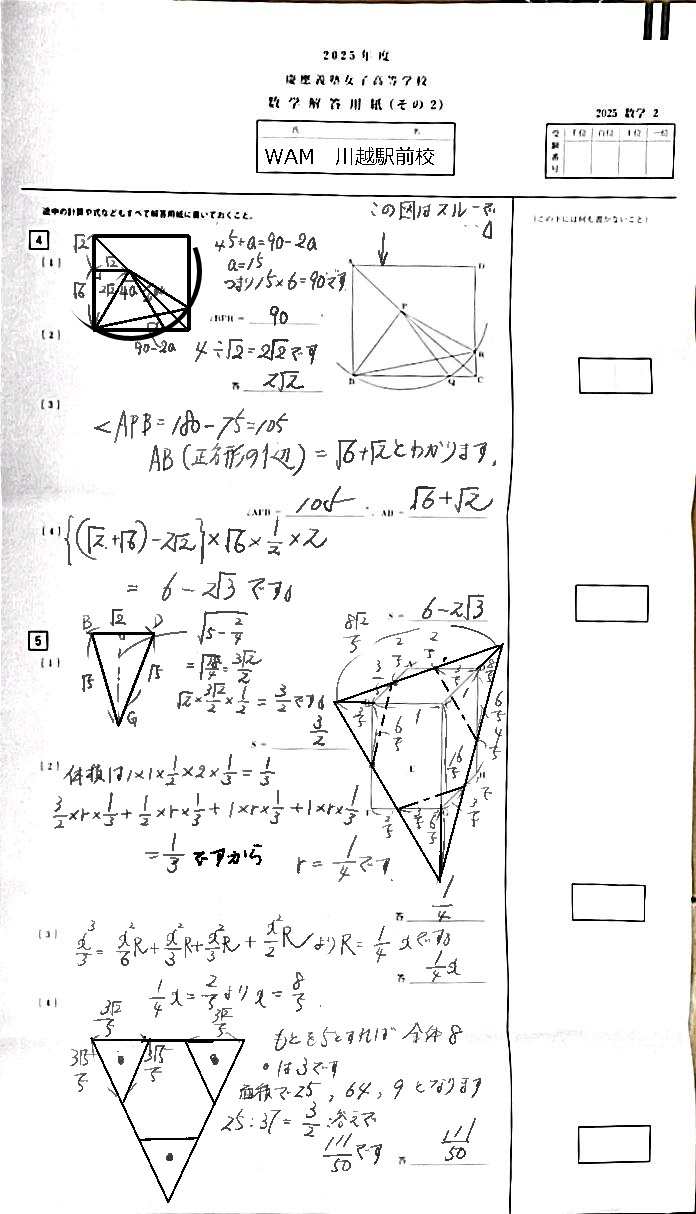 2025年度
慶應義塾女子高等学校
数学解答用紙(その2)
氏 名
WAM 川越駅前校
2025 数学 2
受験番号 千位 百位 十位 一位
途中の計算や式などもすべて解答用紙に書いておくこと。
(この下には何も書かないこと)
この図はスルーで
4
[1]
√2
√2
√6
2√2
4a
90-2a
45+a=90-2a
a=15
つまり15×6=90です
∠BPR = 90
A
D
P
R
B
Q
C
[2]
4÷√2=2√2です
答 2√2
[3]
∠APB=180-75=105
AB(正方形の1辺)=√6+√2とわかります。
∠APB = 105 , AB = √6+√2
[4]
{(√2+√6)-2√2}×√6×1/2×2
= 6-2√3です。
S = 6-2√3
5
[1]
B
√2
D
√5
√5
G
√5-2/4
=√18/4=3√2/2
√2×3√2/2×1/2=3/2です。
S = 3/2
8√2/5
[2]
体積は1×1×1/2×2×1/3=1/3
3/2×r×1/3+1/2×r×1/3+1×r×1/3+1×r×1/3
=1/3ですから
r=1/4です
答 1/4
[3]
x³/3=x²/6R+x²/3R+x²/3R+x²/2RよりR=1/4xです。
答 1/4x
[4]
1/4x=2/5よりx=8/5
3√2/5
3√2/5
3√5/5
3√5/5
もとを5とすれば全体8
•は3です
面積で25,64,9となります
25:37=3/2:答えで
111/50です
答 111/50